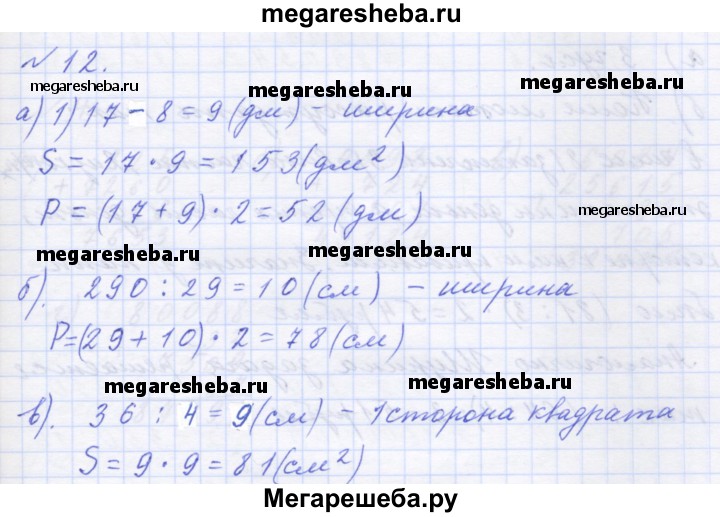 megaresheba.ru
№ 12.
megaresheba.ru megaresheba.ru
а) 1) 17 - 8 = 9 (дм) - ширина
S = 17 · 9 = 153 (дм²)
P = (17 + 9) · 2 = 52 (дм)
megaresheba.ru
megaresheba.ru megaresheba.ru
б). 290 : 29 = 10 (см) - ширина
P = (29 + 10) · 2 = 78 (см)
megaresheba.ru megaresheba.ru
в). 36 : 4 = 9 (см) - 1 сторона квадрата
S = 9 · 9 = 81 (см²)
Мегарешеба.ру